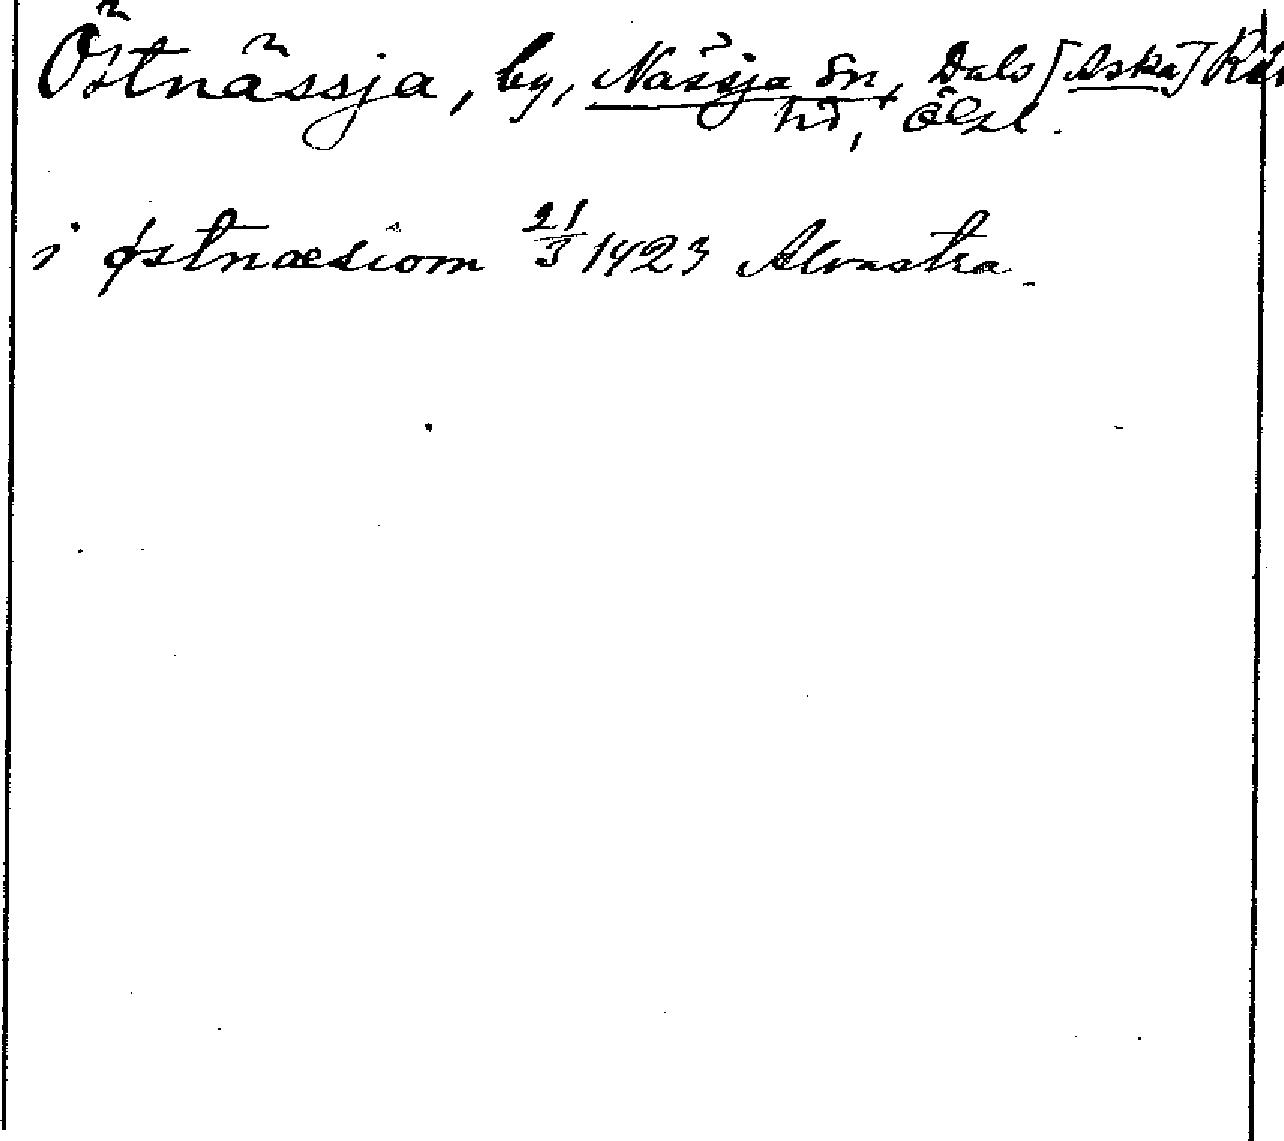 Östnässja, by, Nässja sn, Dals [Aska]
hd, Ögl.
i østnæsiom 21/3 1423 Alvastra.